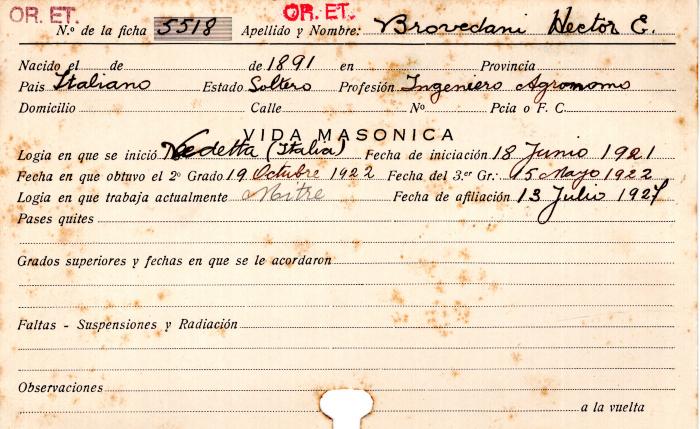 OR. ET. OR. ET.
N.º de la ficha 5518 Apellido y Nombre: Brovedani Hector E.
Nacido el de de 1891 en Provincia
Pais Italiano Estado Soltero Profesión Ingeniero Agronomo
Domicilio Calle Nº Pcia o F. C.
VIDA MASONICA
Logia en que se inició Vedetta (Italia) Fecha de iniciación 18 Junio 1921
Fecha en que obtuvo el 2º Grado 19 Octubre 1922 Fecha del 3.er Gr: 15 Mayo 1922
Logia en que trabaja actualmente Mitre Fecha de afiliación 13 Julio 1927
Pases quites
Grados superiores y fechas en que se le acordaron
Faltas - Suspensiones y Radiación
Observaciones
a la vuelta